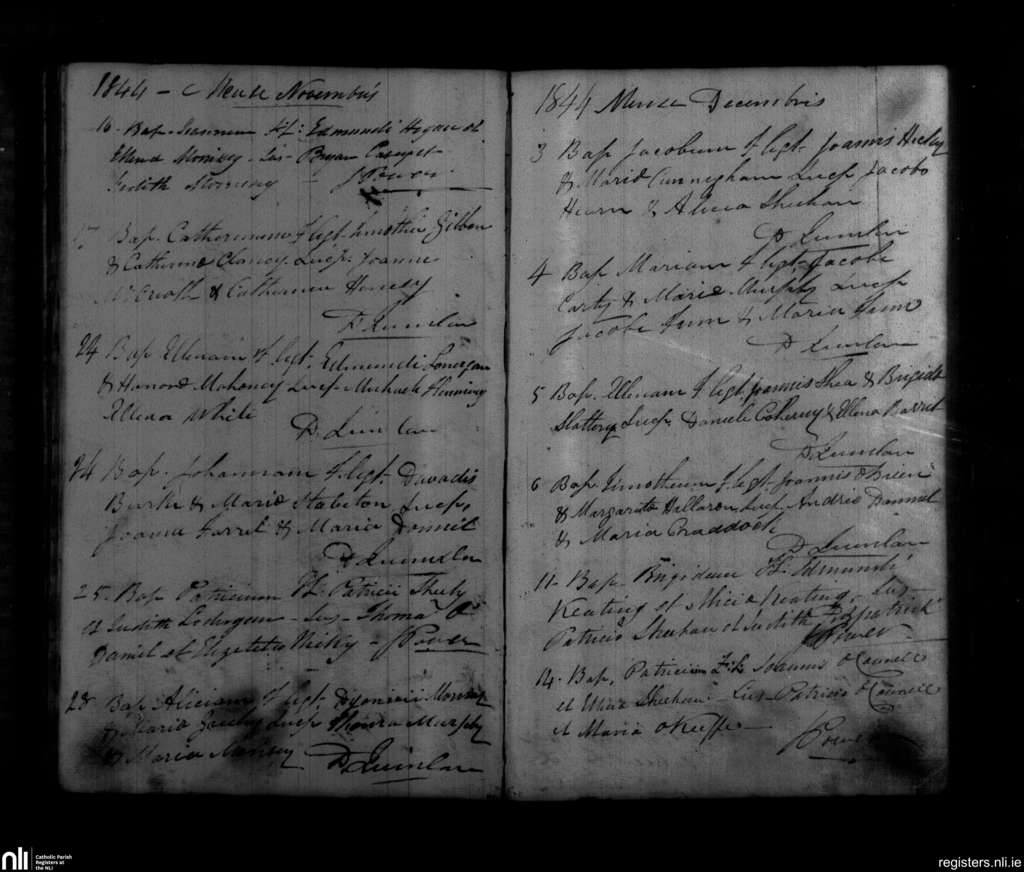 1844 - Mense Novembris
10. Bap. Joannem F.L: Edmundi Hogan et
Ellena Morrisey - Sus - Bryan
Judith Morrisey - J Power
17 Bap. Catherinam f legt. Timothei Gilbon
& Catherine Clancy. Lucp. Joanne
McGrath & Catherina Henesy
D. Quinlan
24 Bap. Ellenam f legt. Edmundi Lonergan
& Honora Mahoney Lucp. Michaele Flemming
Ellena White
D. Quinlan
24 Bap. Johannam f legt. Davadis
Burke & Maria Stableton Lucp.
Joanna Farrel & Maria Donnel
D. Quinlan
25. Bap Patricium F.L. Patricii Sheehy
et Judith Londrigan - Sus - Thoma O
Daniel et Elizabetta Hickey - J Power
28 Bap. Aliciam f legt. Dyonisii
& Maria Lucp. Murphy
& Maria
D. Quinlan
1844 Mense Decembris
3 Bap Jacobum f legt. Joannis Hickey
& Maria Cunnigham Lucp Jacobo
Hearn & Alicia Sheehan
D. Quinlan
4 Bap Mariam f legt. Jacobi
Carty & Maria Murphy Lucp
Jacobo & Maria
D Quinlan
5 Bap. Ellenam f legt. Joannis Shea & Brigida
Slattery Lucp. Daniele & Ellena Barret
D. Quinlan
6 Bap Timotheum f legt Joannis O Brien
& Margarita Halloran Lucp Andrea Donnel
& Maria Braddock
D Quinlan
11. Bap. Brigidam F.L. Edmundi
Keating et Alicia Keating. Sus
Patricio Sheehan et Judith Fitzpatrick
J Power
14. Bap. Patricium F.L. Joannis O Connell
et Alicia Sheehan Sus Patricio O Connell
et Maria O Keeffe -
J Power
nli
Catholic Parish
Registers at
the NLI
registers.nli.ie